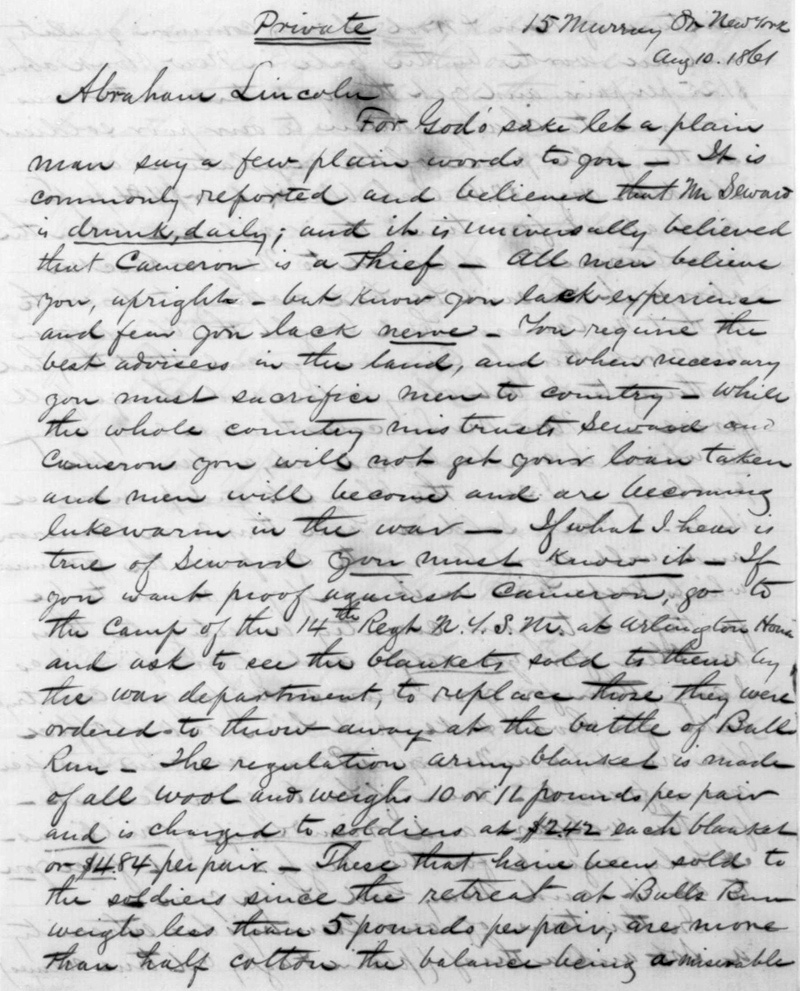 Private
15 Murray St New York
Aug 10. 1861
Abraham Lincoln
For God's sake let a plain
man say a few plain words to you — It is
commonly reported and believed that Mr Seward
is drunk, daily; and it is universally believed
that Cameron is a thief — All men believe
you, upright - but know you lack experience
and fear you lack nerve - You require the
best advisers in the land, and when necessary
you must sacrifice men to country - While
the whole country mistrusts Seward and
Cameron you will not get your loan taken
and men will become and are becoming
lukewarm in the war — If what I hear is
true of Seward you must know it - If
you want proof against Cameron, go to
the camp of the 14th Regt N.Y.S.M. at Arlington House
and ask to see the blankets sold to them by
the war department, to replace those they were
ordered to throw away at the battle of Bull
Run - The regulation army blanket is made
of all wool and weighs 10 or 11 pounds per pair
and is charged to soldiers at $242 each blanket
or $484 per pair - These that have been sold to
the soldiers since the retreat at Bulls Run
weigh less than 5 pounds per pair, are more
than half cotton the balance being a miserable